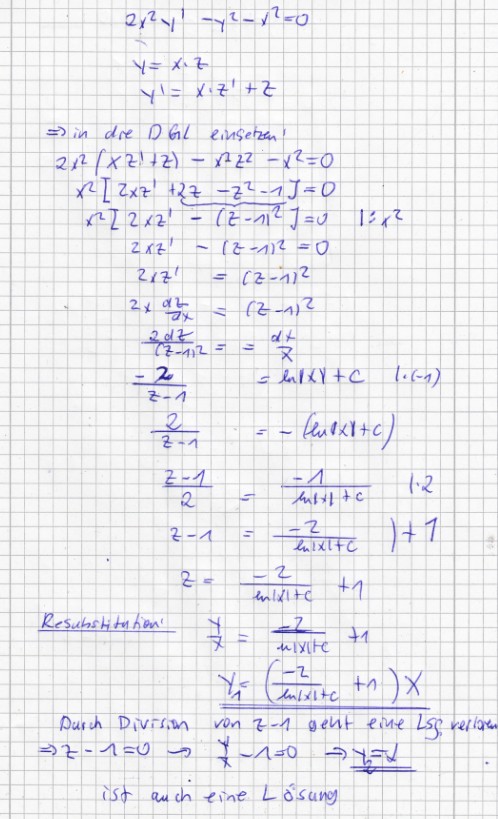 2x²y' - y² - x² = 0
y = x · z
y' = x · z' + z
⇒ in die DGL einsetzen:
2x² (xz' + z) - x²z² - x² = 0
x² [2xz' + 2z - z² - 1] = 0
x² [2xz' - (z-1)²] = 0 |: x²
2xz' - (z-1)² = 0
2xz' = (z-1)²
2x dz/dx = (z-1)²
2dz/(z-1)² = = dx/x
-2/(z-1) = ln|x| + c |·(-1)
2/(z-1) = -(ln|x| + c)
(z-1)/2 = -1/(ln|x| + c) |·2
z-1 = -2/(ln|x| + c) )+1
z = -2/(ln|x| + c) + 1
Resubstitution: y/x = -2/(ln|x| + c) + 1
y₁ = (-2/(ln|x| + c) + 1) x
Durch Division von z-1 geht eine Lsg. verloren
⇒ z - 1 = 0 → y/x - 1 = 0 ⇒ y₂ = x
ist auch eine Lösung